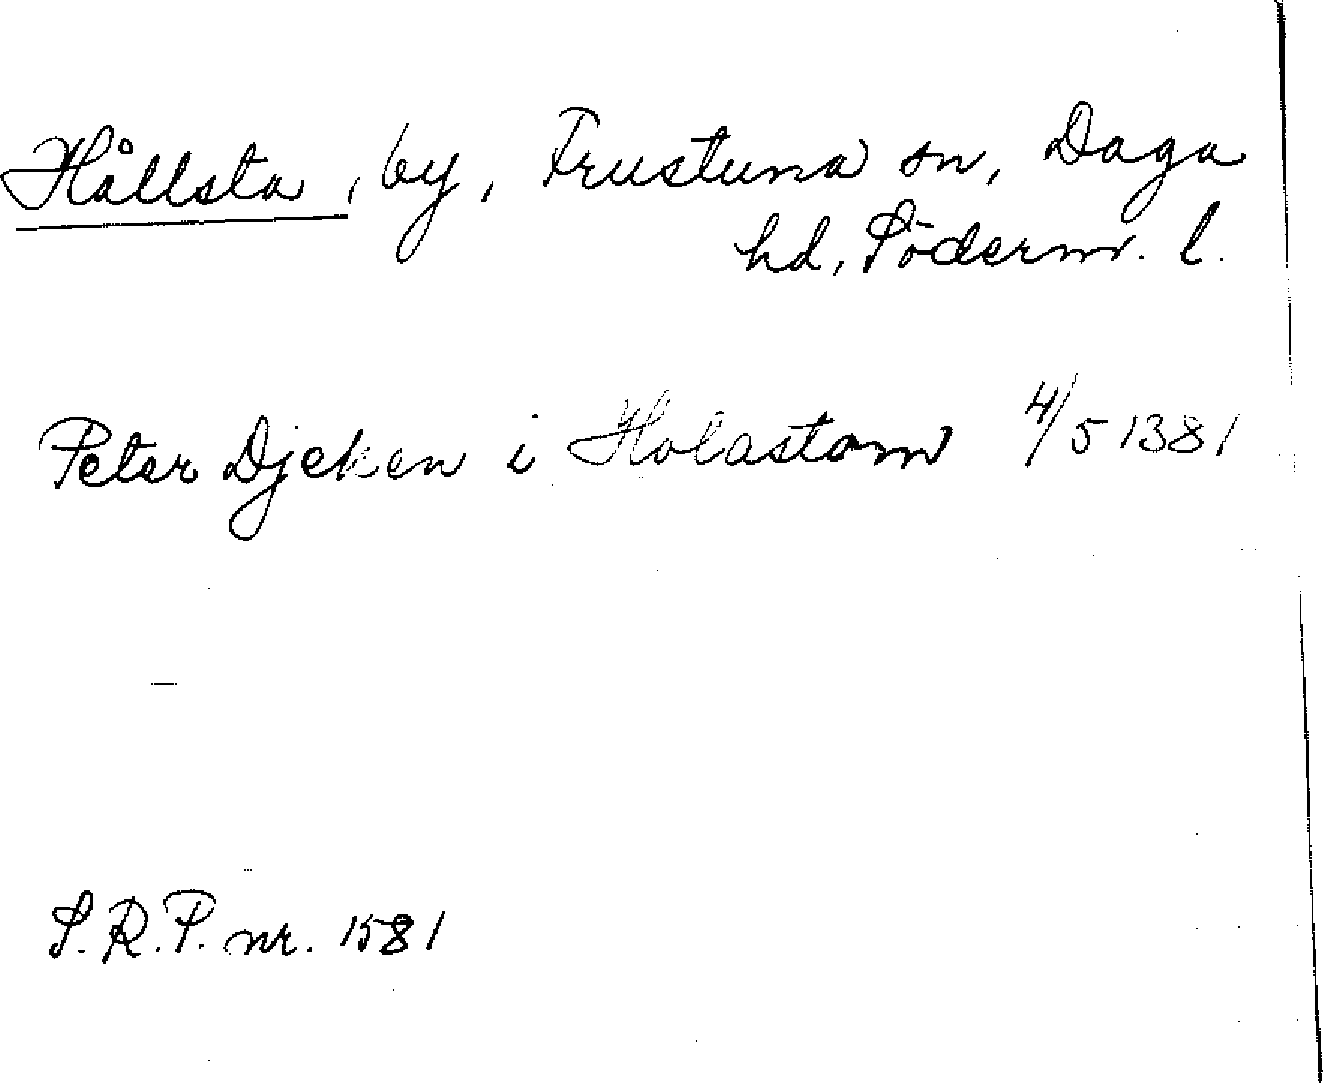 Hållsta, by, Frustuna sn, Daga
hd, Söderm. l.
Peter Djeken i Holastom 4/5 1381
S.R.P. nr. 1581